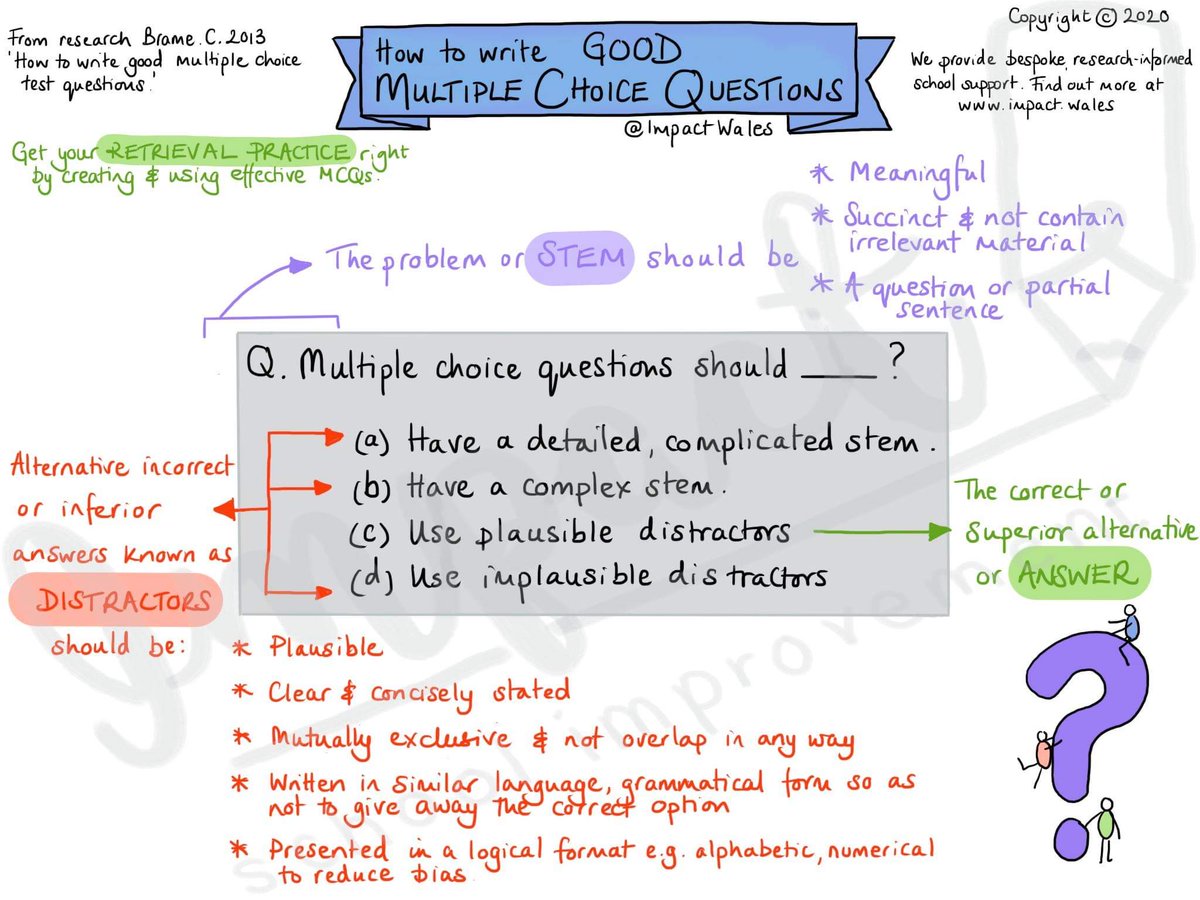 From research Brame. C. 2013
'How to write good multiple choice
test questions.'
How to write GOOD
MULTIPLE CHOICE QUESTIONS
@ImpactWales
Copyright © 2020
We provide bespoke, research-informed
school support. Find out more at
www.impact.wales
Get your RETRIEVAL PRACTICE right
by creating & using effective MCQs.
The problem or STEM should be
* Meaningful
* Succinct & not contain
irrelevant material
* A question or partial
sentence
Q. Multiple choice questions should ____ ?
(a) Have a detailed, complicated stem.
(b) Have a complex stem.
(c) Use plausible distractors
(d) Use implausible distractors
Alternative incorrect
or inferior
answers known as
DISTRACTORS
should be:
The correct or
Superior alternative
or ANSWER
* Plausible
* Clear & concisely stated
* Mutually exclusive & not overlap in any way
* Written in similar language, grammatical form so as
not to give away the correct option
* Presented in a logical format e.g. alphabetic, numerical
to reduce bias
Impact
school improvement